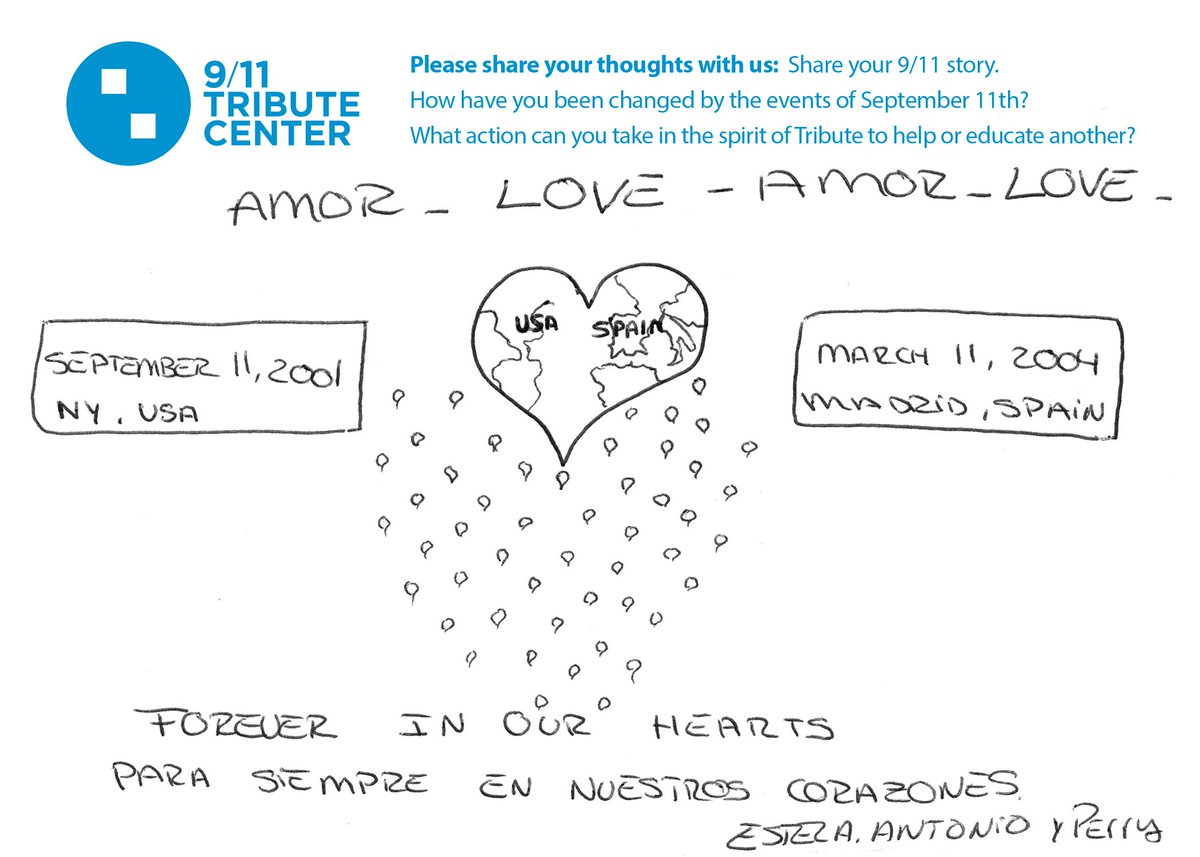 9/11
TRIBUTE
CENTER
Please share your thoughts with us: Share your 9/11 story.
How have you been changed by the events of September 11th?
What action can you take in the spirit of Tribute to help or educate another?
AMOR - LOVE - AMOR - LOVE -
USA SPAIN
SEPTEMBER 11, 2001
NY, USA
MARCH 11, 2004
MADRID, SPAIN
FOREVER IN OUR HEARTS
PARA SIEMPRE EN NUESTROS CORAZONES.
ESTELA, ANTONIO Y PERRY